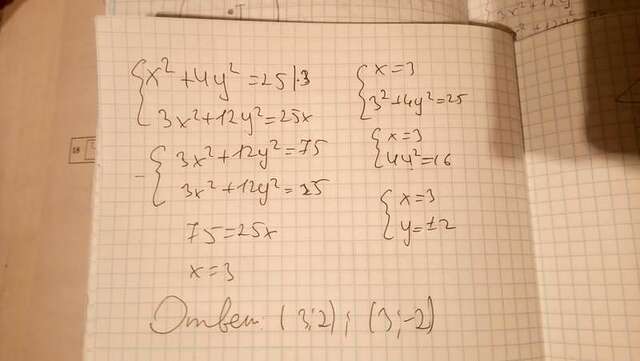 x² + 4y² = 25 |·3
3x² + 12y² = 25x
3x² + 12y² = 75
3x² + 12y² = 25
75 = 25x
x = 3
x = 3
3² + 4y² = 25
x = 3
4y² = 16
x = 3
y = ±2
Ответ: (3;2); (3;-2)